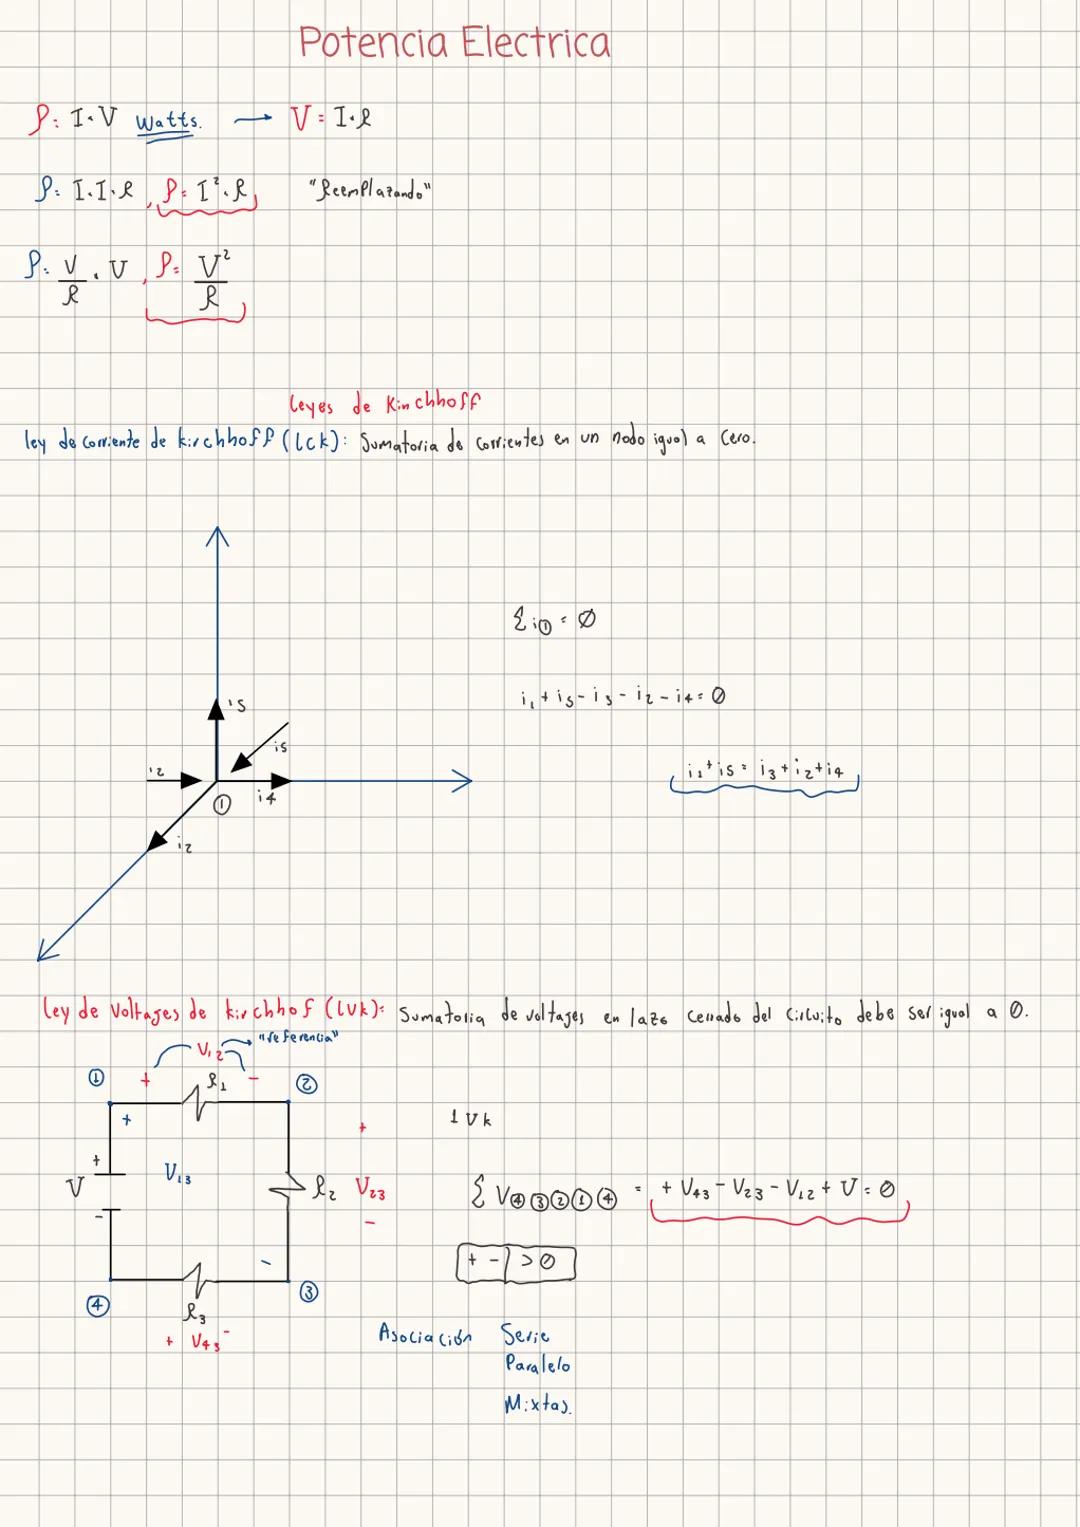 Potencia Electrica
P: I·V Watts. → V = I·R
P: I·I·R, P= I²·R, "Reemplazando"
P: V/R · V, P= V²/R
Leyes de Kinchhoff
ley de corriente de kirchhoff (lck): Sumatoria de corrientes en un nodo igual a Cero.
Σi① = Ø
i₁ + i5 - i3 - i2 - i4 = Ø
i5
i5
i1 + i5 = i3 + i2 + i4
i2
①
i4
i2
ley de Voltajes de kirchhof (lVk): Sumatoria de voltajes en lazo cerrado del Circuito debe ser igual a Ø.
V12 "referencia"
① + R1 - ②
+
+ lVk
+
V V13 R2 V23
Σ V④③②①④ = + V43 - V23 - V12 + V = Ø
- -
- + - > Ø
④ ③
R3
+ V43 -
Asociación Serie
Paralelo
Mixtas.